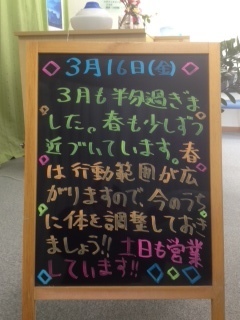 3月16日(金)
3月も半分過ぎま
した。春も少しずつ
近づいています。春
は行動範囲が広
がりますので、今のうち
に体を調整してお き
ましょう!!土日も営業
しています!!